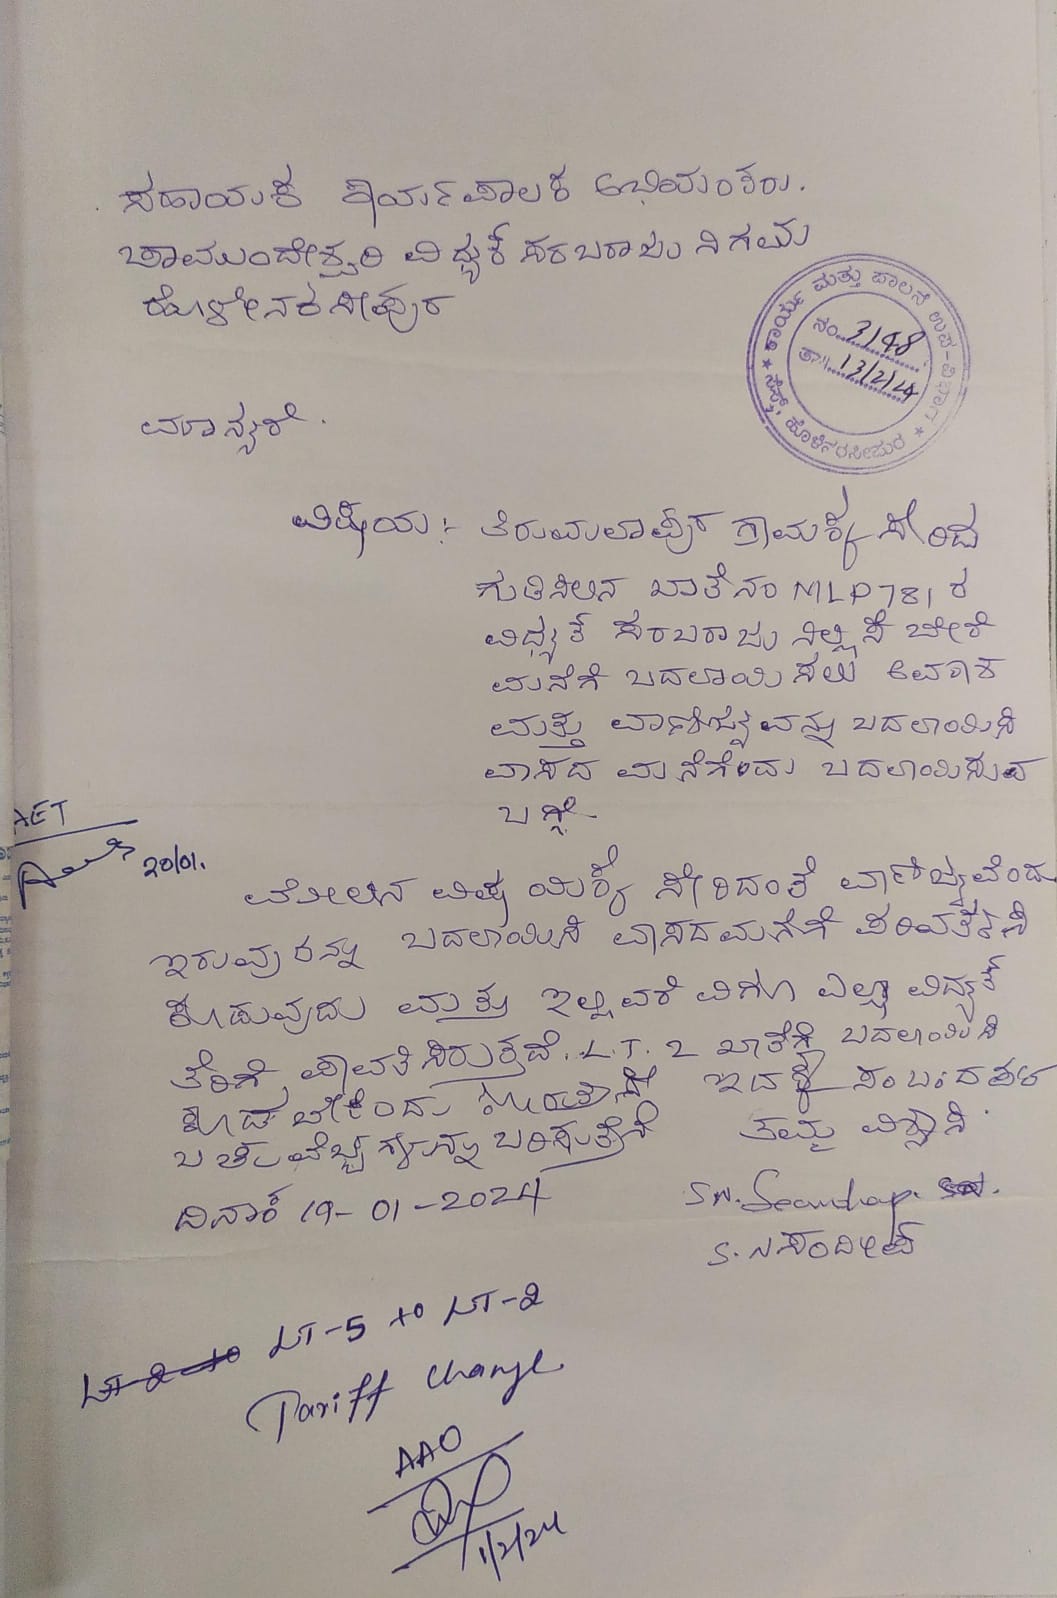 ಸಹಾಯಕ ಕಾರ್ಯಪಾಲಕ ಅಭಿಯಂತರು.
ಚಾಮುಂಡೇಶ್ವರಿ ವಿದ್ಯುತ್ ಸರಬರಾಜು ನಿಗಮ
ಹೊಳೇನರಸೀಪುರ
ಕಾರ್ಯ ಮತ್ತು ಪಾಲನೆ ಉಪ-ವಿಭಾಗ
ಸೆಸ್ಕ್, ಹೊಳೆನರಸೀಪುರ
ನಂ. 3148
ತಾ॥ 13/2/24
ಮಾನ್ಯರೆ.
ವಿಷಯ:- ತಿರುಮಲಾಪುರ ಗ್ರಾಮಕ್ಕೆ ಸೇರಿದ
ಖಾತೆ ನಂ MLP 781 ರ
ವಿಧ್ಯುತ್ ಸರಬರಾಜು ನಿಲ್ಲಿಸಿ ಬೇರೆ
ಮನೆಗೆ ಬದಲಾಯಿಸಲು
ಮತ್ತು ವಾಣಿಜ್ಯವನ್ನು ಬದಲಾಯಿಸಿ
ವಾಸದ ಮನೆಗೆಂದು ಬದಲಾಯಿಸುವ
ಬಗ್ಗೆ-
AET
20/01.
ಮೇಲಿನ ವಿಷಯಕ್ಕೆ ಸೇರಿದಂತೆ ವಾಣಿಜ್ಯವೆಂದು
ಇರುವುದನ್ನು ಬದಲಾಯಿಸಿ ವಾಸದಮನೆಗೆ ಪರಿವರ್ತಿಸಿ
ಕೊಡುವುದು ಮತ್ತು ಇಲ್ಲಿವರೆವಿಗೂ ಎಲ್ಲಾ ವಿದ್ಯುತ್
ತೆರಿಗೆ ಪಾವತಿಸಿರುತ್ತದೆ. L.T. 2 ಖಾತೆಗೆ ಬದಲಾಯಿಸಿ
ಕೊಡಬೇಕೆಂದು ಇದಕ್ಕೆ ಸಂಬಂದಪಟ್ಟ
ಖರ್ಚುವೆಚ್ಚಗಳನ್ನು ಬರಿಸುತ್ತೇನೆ ತಮ್ಮ ವಿಶ್ವಾಸಿ.
ದಿನಾಂಕ 19-01-2024
S. N ಸಂದೀಪ್
LT-2 to LT-5 to LT-2
Tariff change
AAO
1/2/24